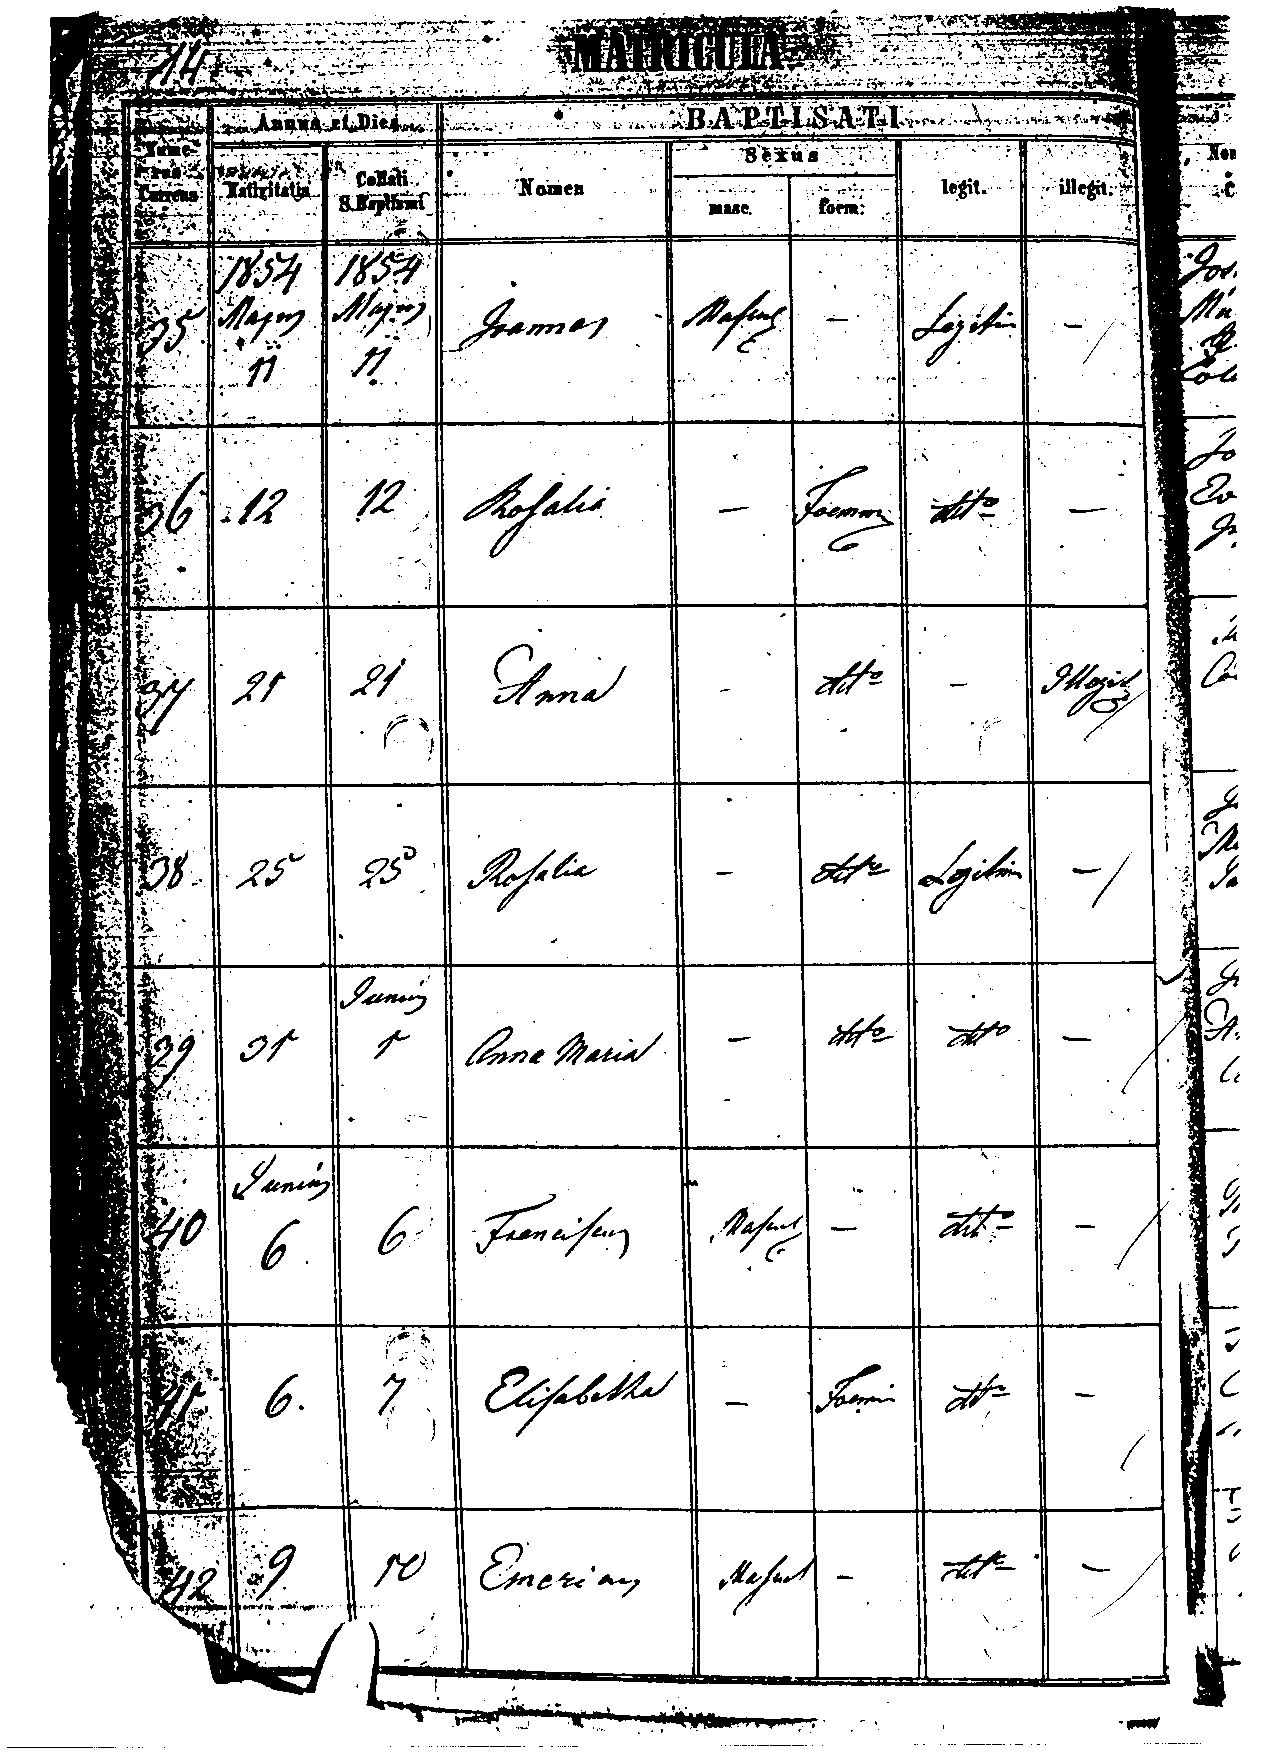 14
MATRICULA
Numerus Currens
Annus et Dies
BAPTISATI
Nativitatis
Collati S. Baptismi
Nomen
Sexus
masc.
foem:
legit.
illegit.
35 1854 Majus 11 1854 Majus 11 Joannes Mascul — Legitim —
36 12 12 Rosalia — Foemin ditto —
37 21 21 Anna - ditto - Illegit
38 25 25 Rosalia — ditto Legitim —
39 31 Junius 1 Anna Maria — ditto ditto —
40 Junius 6 6 Franciscus Mascul — ditto —
41 6. 7 Elisabetha — Foemin ditto —
42 9 10 Emericus Mascul — ditto —